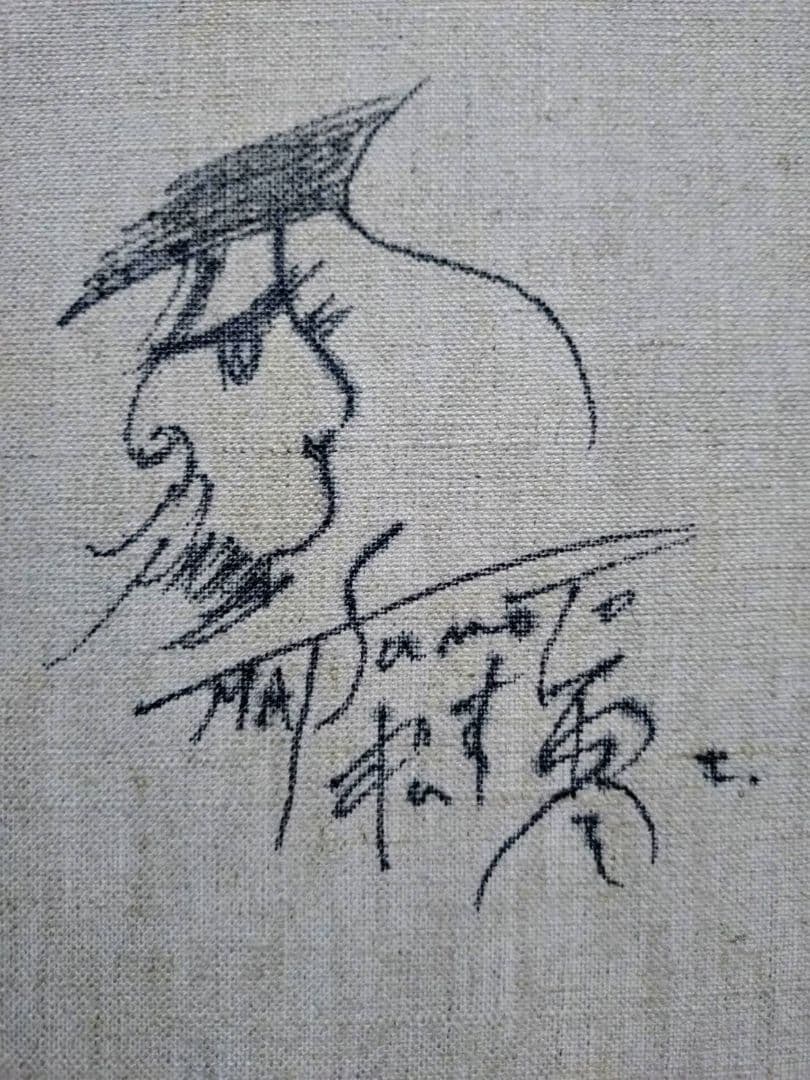 MATSumoTo
松本
t.